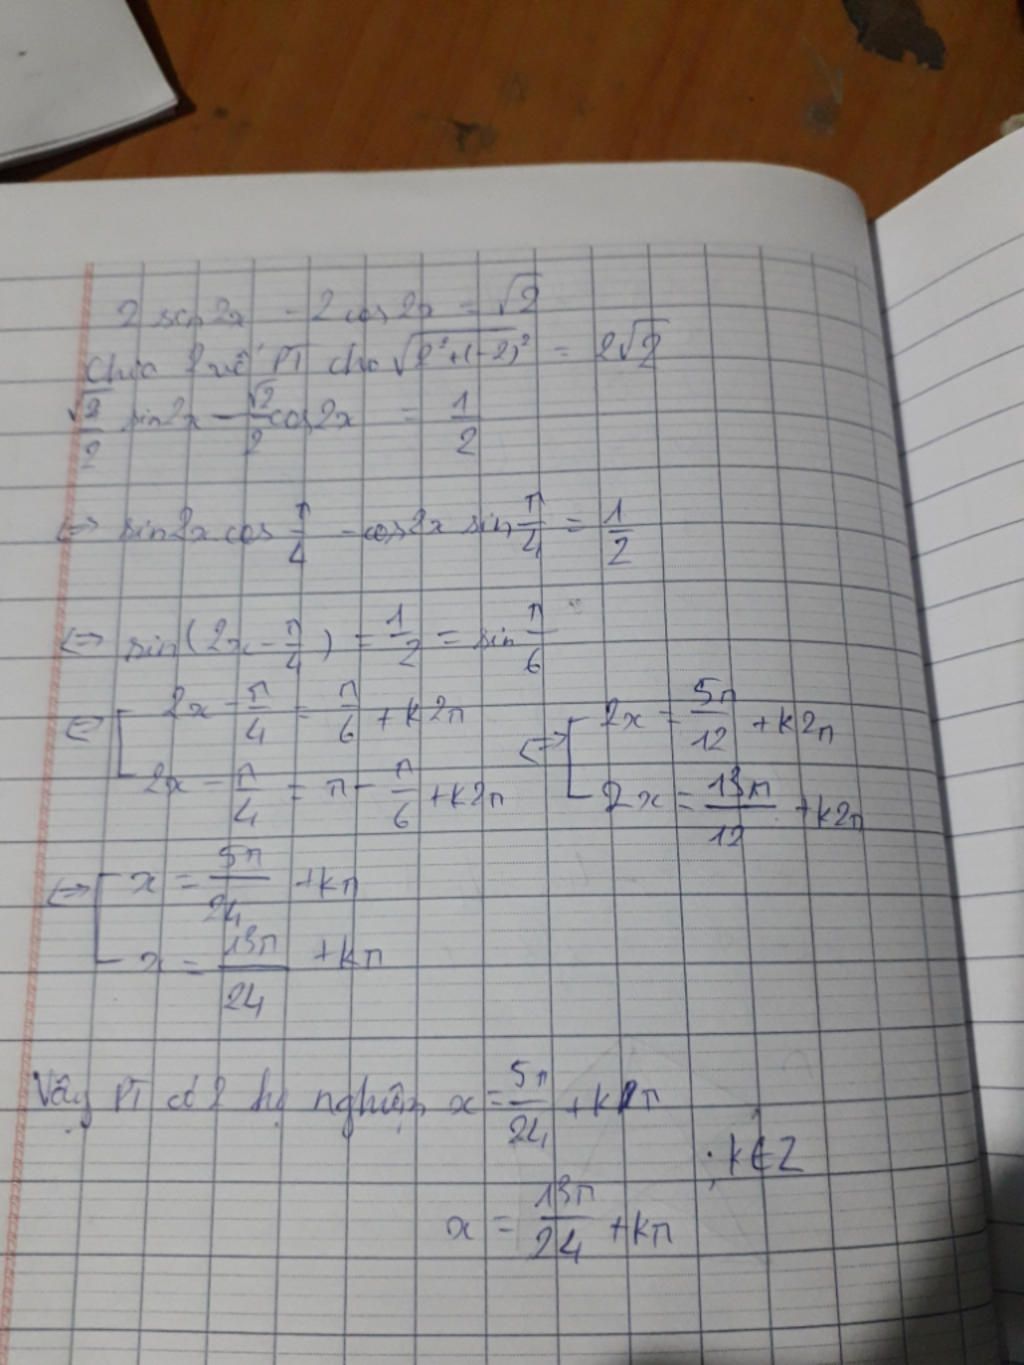 2 sin 2x - 2 cos 2x = √2
Chia 2 vế PT cho √(2² + (-2)²) = 2√2
√2/2 sin2x - √2/2 cos2x = 1/2
⇔ sin2x cos π/4 - cos2x sin π/4 = 1/2
⇔ sin(2x - π/4) = 1/2 = sin π/6
⇔ [ 2x - π/4 = π/6 + k2π
2x - π/4 = π - π/6 + k2π
⇔ [ 2x = 5π/12 + k2π
2x = 13π/12 + k2π
⇔ [ x = 5π/24 + kπ
x = 13π/24 + kπ
Vậy PT có 2 họ nghiệm x = 5π/24 + kπ
; k ∈ Z
x = 13π/24 + kπ